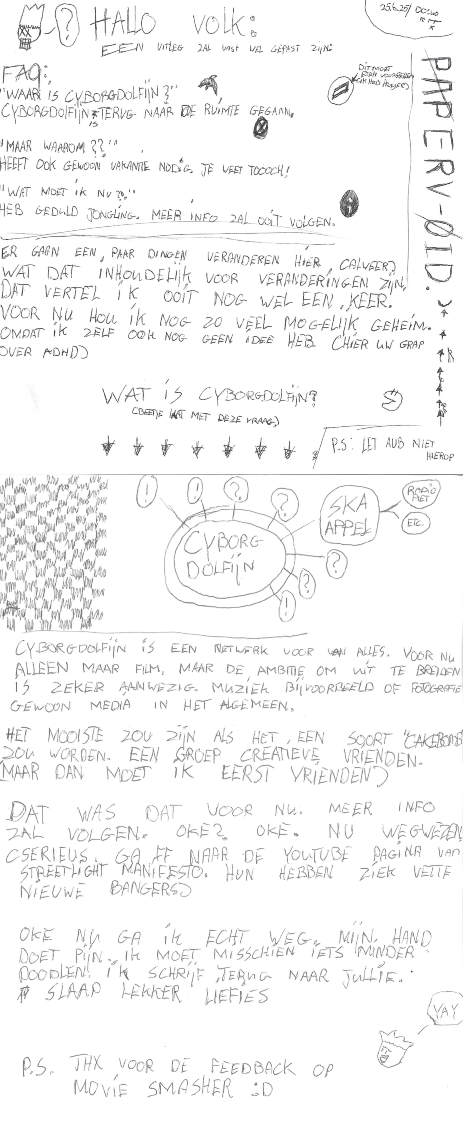 HALLO VOLK:
EEN UITLEG ZAL VAST WEL GEPAST ZIJN:
25/6/25/
FAQ:
DIT MOET
"WAAR IS CYBORGDOLFIJN?"
CYBORGDOLFIJN IS TERUG NAAR DE RUIMTE GEGAAN.
"MAAR WAAROM??"
HEEFT OOK GEWOON VAKANTIE NODIG. JE WEET TOCOCH!
"WAT MOET IK NU?"
HEB GEDULD JONGLING. MEER INFO ZAL OOIT VOLGEN.
PAPERV-ØID.
ER GAAN EEN PAAR DINGEN VERANDEREN HIER,
WAT DAT INHOUDELIJK VOOR VERANDERINGEN ZIJN,
DAT VERTEL IK OOIT NOG WEL EEN KEER.
VOOR NU HOU IK NOG ZO VEEL MOGELIJK GEHEIM.
OMDAT IK ZELF OOK NOG GEEN IDEE HEB (HIER UW GRAP
OVER ADHD)
WAT IS CYBORGDOLFIJN?
(BEETJE LAAT MET DEZE VRAAG)
P.S: LET AUB NIET
HIEROP
! ! ? ?
SKA
APPEL
RADIO
MET
ETC.
CYBORG
DOLFIJN
?
?
!
CYBORGDOLFIJN IS EEN NETWERK VOOR VAN ALLES. VOOR NU
ALLEEN MAAR FILM, MAAR DE AMBITIE OM UIT TE BREIDEN
IS ZEKER AANWEZIG. MUZIEK BIJVOORBEELD OF FOTOGRAFIE
GEWOON MEDIA IN HET ALGEMEEN.
HET MOOISTE ZOU ZIJN ALS HET EEN SOORT
ZOU WORDEN. EEN GROEP CREATIEVE VRIENDEN.
(MAAR DAN MOET IK EERST VRIENDEN)
DAT WAS DAT VOOR NU. MEER INFO
ZAL VOLGEN. OKE? OKE. NU WEGWEZEN
(SERIEUS. GA FF NAAR DE YOUTUBE PAGINA VAN
STREETLIGHT MANIFESTO. HUN HEBBEN ZIEK VETTE
NIEUWE BANGERS)
OKE NU GA IK ECHT WEG. MIJN HAND
DOET PIJN. IK MOET MISSCHIEN IETS MINDER
DOODLEN. IK SCHRIJF TERUG NAAR JULLIE.
SLAAP LEKKER LIEFIES
YAY
P.S. THX VOOR DE FEEDBACK OP
MOVIE SMASHER :D